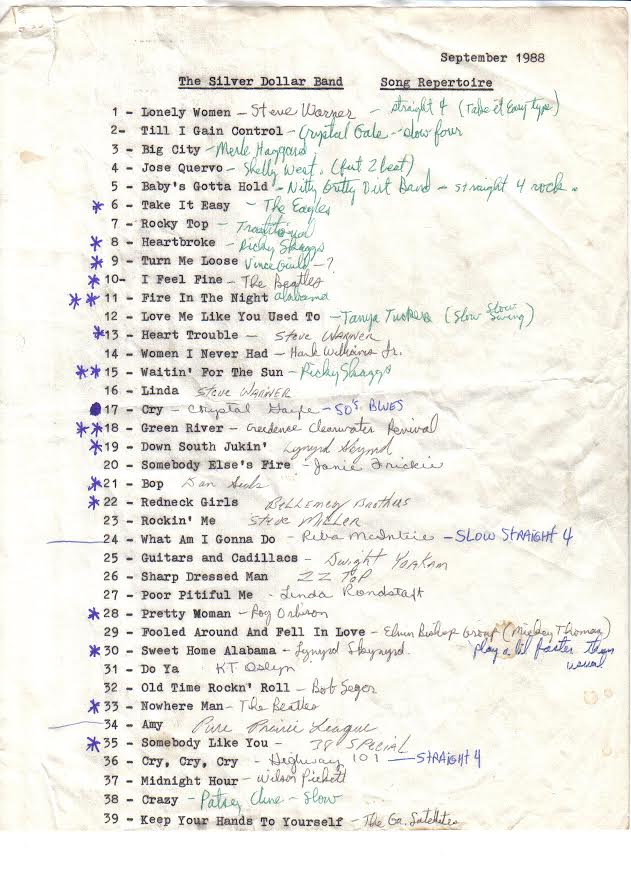 September 1988
The Silver Dollar Band Song Repertoire
1 - Lonely Women - Steve Warner - straight 4 (Take it Easy type)
2- Till I Gain Control - Crystal Gale - slow four
3 - Big City - Merle Haggard
4 - Jose Quervo - Shelly West. (fut 2 beat)
5 - Baby's Gotta Hold - Nitty Gritty Dirt Band - straight 4 rock.
* 6 - Take It Easy - The Eagles
7 - Rocky Top - Traditional
* 8 - Heartbroke - Ricky Skaggs
* 9 - Turn Me Loose Vince Guild - ?
* 10- I Feel Fine - The Beatles
* * 11 - Fire In The Night Alabama
12 - Love Me Like You Used To - Tanya Tucker (Slow Slow Swing)
* 13 - Heart Trouble - STEVE WARNER
14 - Women I Never Had - Hank Williams Jr.
* * 15 - Waitin' For The Sun - Ricky Skaggs
16 - Linda STEVE WARNER
17 - Cry - Crystal Gayle - 50's BLUES
* * 18 - Green River - Creedence Clearwater Revival
* 19 - Down South Jukin' Lynyrd Skynyrd
20 - Somebody Else's Fire - Janie Frickie
* 21 - Bop Dan Seals
* 22 - Redneck Girls Bellemey Brothers
23 - Rockin' Me Steve MILLER
24 - What Am I Gonna Do - Reba McIntire - SLOW STRAIGHT 4
25 - Guitars and Cadillacs - Dwight Yoakam
26 - Sharp Dressed Man ZZ TOP
27 - Poor Pitiful Me - Linda Rondstaft
* 28 - Pretty Woman - Roy Orbison
29 - Fooled Around And Fell In Love - Elvin Bishop Group (Mickey Thomas)
* 30 - Sweet Home Alabama - Lynyrd Skynyrd. play a lil faster than usual
31 - Do Ya KT Oslyn
32 - Old Time Rockn' Roll - Bob Seger
* 33 - Nowhere Man - The Beatles
34 - Amy Pure Prairie League
* 35 - Somebody Like You - 38 SPECIAL
36 - Cry, Cry, Cry - Highway 101 - STRAIGHT 4
37 - Midnight Hour - Wilson Pickett
38 - Crazy - Patsy Cline - Slow
39 - Keep Your Hands To Yourself - The Ga. Satellites